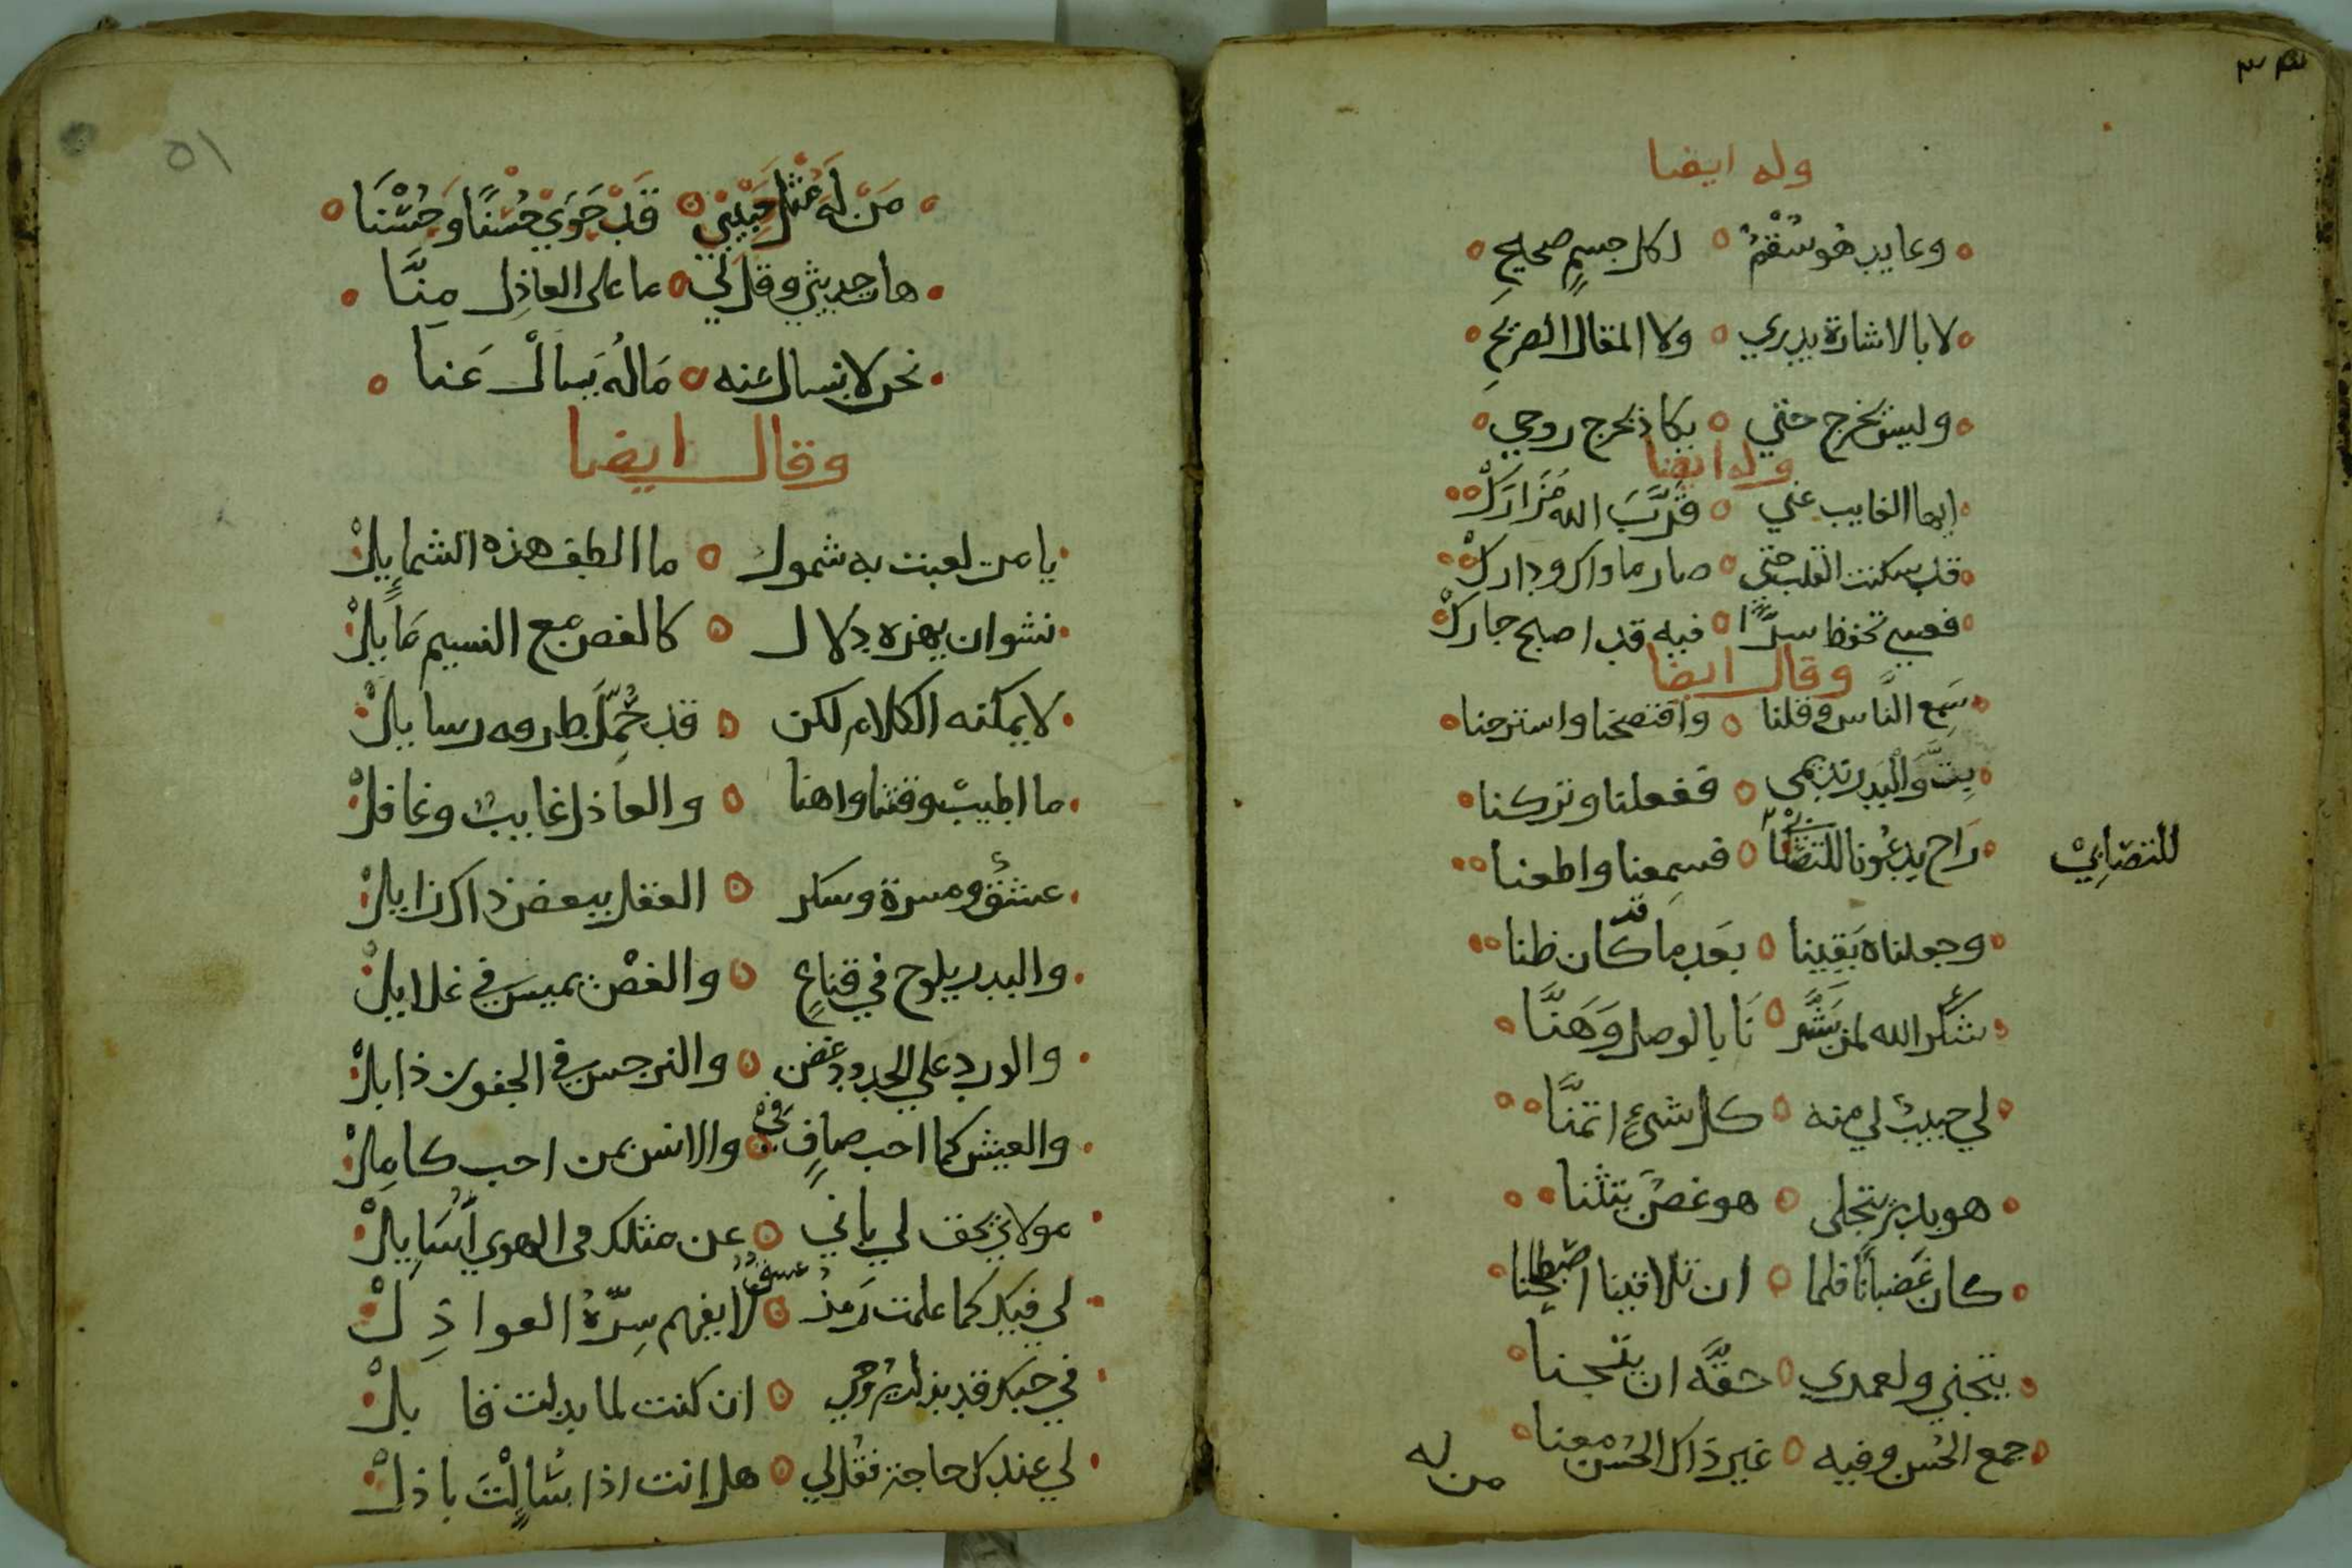 ٣٣
وله ايضا
وعايد هُو سُقْمٌ ○ لكل جسمٍ صحيح
لا بالاشارة يدري ○ ولا المقال الصريحِ
وليس يخرج حتي ○ يكاد تخرج روحي
وله ايضا
ايها الغايب عني ○ قَرَّبَ الله مَزَارَكْ
قد سكنت القلب حتي ○ صار ماواك ودارك
فعسي تحفظ سرًّا ○ فيه قد اصبح جارك
وقال ايضا
سَمِع النَّاس وقلنا ○ وافتضحنا واسترحنا
بِتُّ وَالبَدر نديمى ○ ففعلنا وتركنا
رَاح يدعُونا للتصابي ○ فسمِعنا واطعنا
للتصَابِيْ
وجعلناه يَقِينا ○ بعَد ما قد كان ظنا
شكرَ الله لمن بَشَّر ○ نَا بالوصل وَهَنَّا
لي حبيبٌ لي منه ○ كل شيءٍ اتمنَّا
هو بدر يتجلى ○ هو غصنٌ يتثنا
كان غَضبانًا فلما ○ ان تلاقينا اصطلحنا
يتجني ولعمري ○ حقَّه ان يتجنا
جمع الحُسن وفيه ○ غير ذاك الحُسن معنا
من له
٥١
مَن لَه مثل حَبِيْبي ○ قَد حَوَي حُسْنًا وَحُسْنَا
هات حديثي وقل لي ○ ما على العاذِل مِنَّا
نحن لا نسال عنه ○ مَالهُ يَسالْ عَنا
وقال ايضا
يا من لعبت به شمول ○ ما الطف هذه الشمايلْ
نشوان يهزه دلال ○ كالغصن مع النسيم مَايلْ
لا يمكنه الكلام لكن ○ قد حُمِّل طرفه رسايلْ
ما اطيبْ وقتنا واهنا ○ والعاذل غايبٌ وغافلْ
عشق ومسرة وسكر ○ العقل ببعض ذاك زايلْ
والبدر يلوح في قناعٍ ○ والغصْن يميس في غلايلْ
والورد علي الخدود غض ○ والنرجس في الجفون ذابلْ
والعيش كما احب صافٍ ○ والانس بمن احب كامِلْ
مولاي يحق لي باني ○ عن مثلك في الهوي اُسَايلْ
لي فيك كما علمت رَمزٌ ○ لا يفهم سِرَّهُ العواذِلْ
في حبك قد بذلت رُوحي ○ ان كنت لما بذلت قابلْ
لي عندك حاجة فقُل لي ○ هل انت اذا سُالْتَ باذلْ